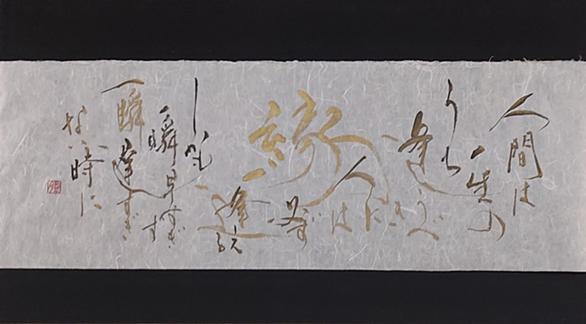 人間は
一生の
うち
逢うべき
人には
必ず
逢える
しかも
一瞬早すぎず
一瞬遅すぎ
ない時に